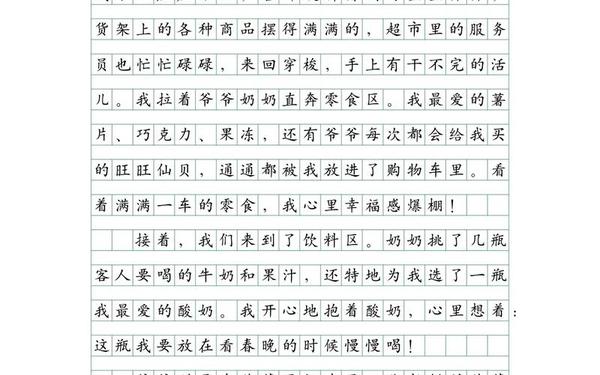 货架上的各种商品摆得满满的，超市里的服务
员也忙忙碌碌，来回穿梭，手上有干不完的活
儿。我拉着爷爷奶奶直奔零食区。我最爱的薯
片、巧克力、果冻，还有爷爷每次都会给我买
的旺旺仙贝，通通都被我放进了购物车里。看
着满满一车的零食，我心里幸福感爆棚！
接着，我们来到了饮料区。奶奶挑了几瓶
客人要喝的牛奶和果汁，还特地为我选了一瓶
我最爱的酸奶。我开心地抱着酸奶，心里想着：
这瓶我要放在看春晚的时候慢慢喝！